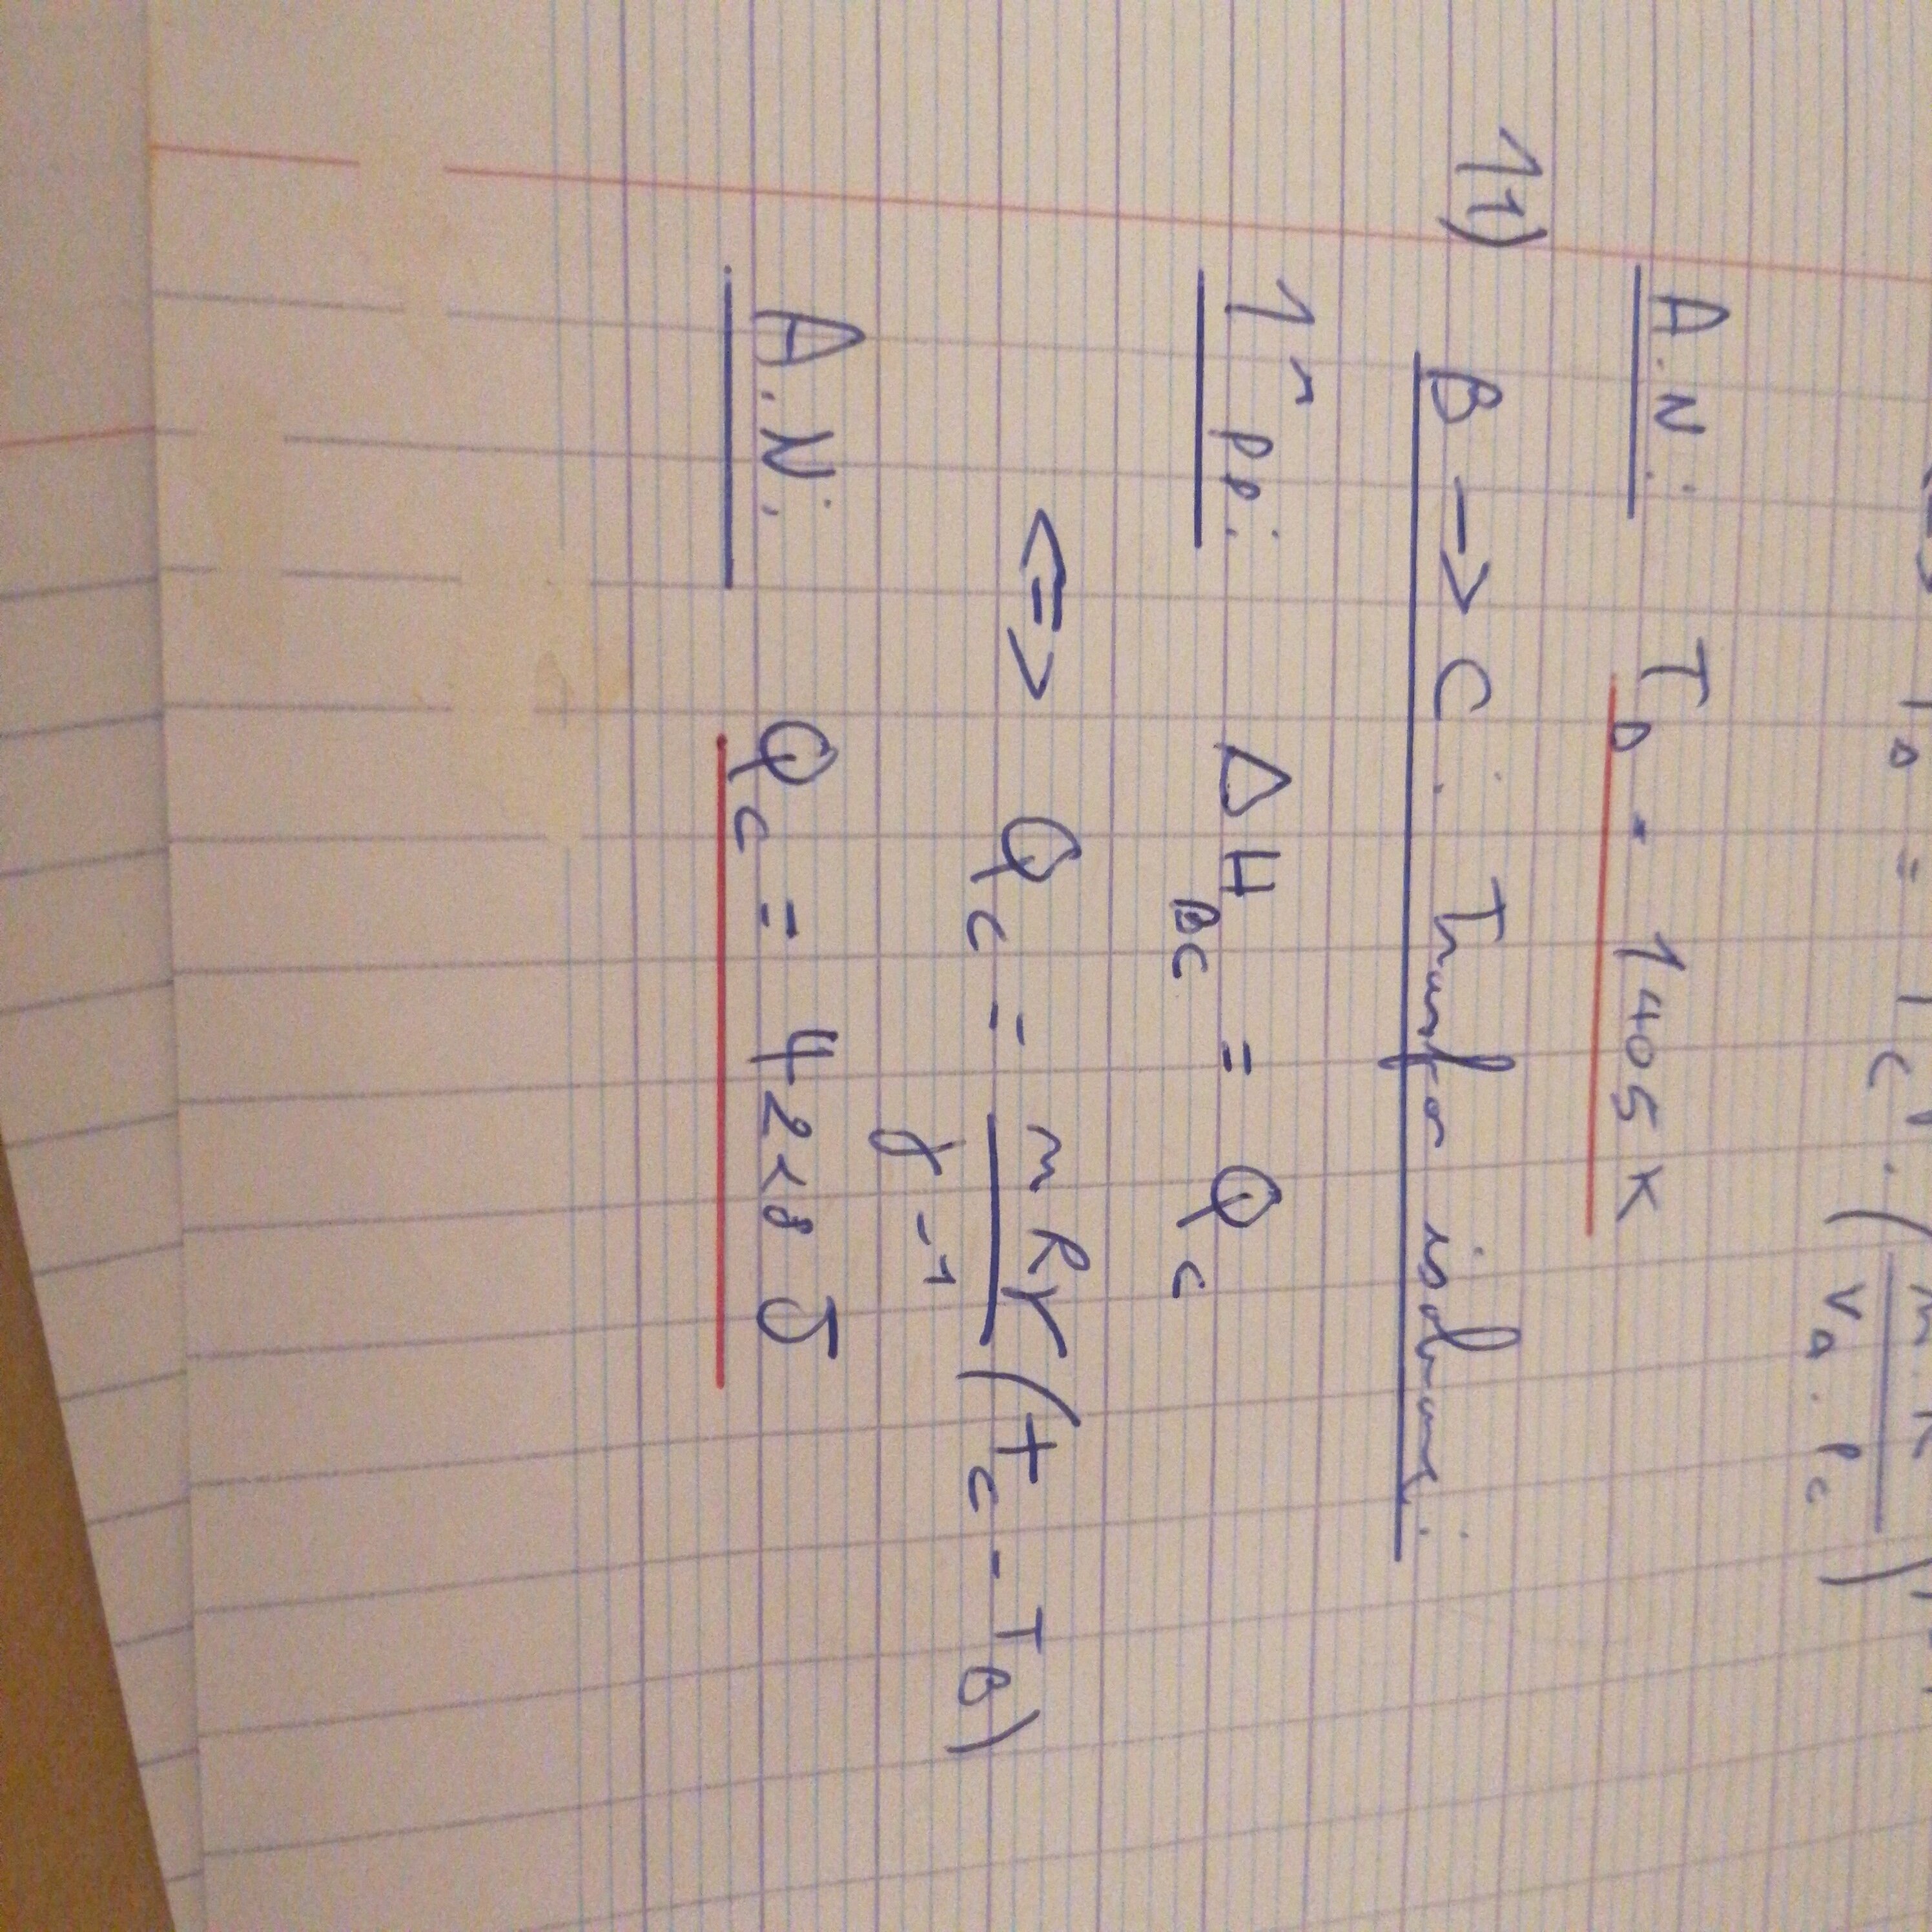 T_D = T_C . ( n R / V_D . P_C )
A.N : T_D = 1405 K
11) B -> C : Transfo isobare :
1r pp : ΔH_BC = Q_C
<=> Q_C = nRγ / γ-1 (T_C - T_B)
A.N : Q_C = 42 J